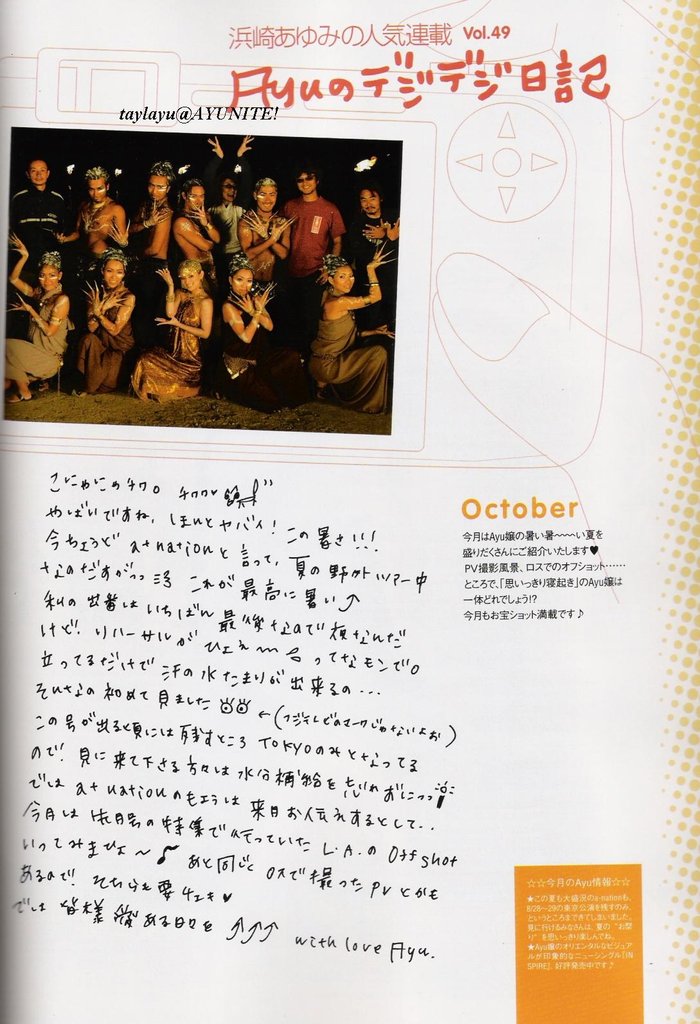 浜崎あゆみの人気連載 Vol.49
Ayuのデジデジ日記
taylayu@AYUNITE!
こにゃにゃのチワ。 チワワ
やばいですね。ほんとヤバイ！この暑さ!!!
今ちょうど a-nationと言って、夏の野外ツアー中
なのだすがっっ これが最高に暑い
私の出番はいちばん最後なので夜なんだ
けど、リハーサルが ひょえ〜〜 ってなモンで。
立ってるだけで汗の水たまりが出来るの...
そんなの初めて見ました ←(フジテレビのマークじゃないよぉ)
この号が出る頃には残すところ TOKYOのみとなってる
ので、見に来て下さる方々は水分補給を忘れずにっっ
では a-nationのもようは来月お伝えするとして..
今月は 先月号の特集で行っていた L.A.の Offshot
いってみまひょ〜♪ あと同じく ロスで撮ったPVとかも
あるので、そちらも要チェキ♥
では 皆様 後ある日々を ↑↑↑ with love Ayu.
October
今月はAyu嬢の暑い暑〜〜〜い夏を
盛りだくさんにご紹介いたします♥
PV撮影風景、ロスでのオフショット……
ところで、「思いっきり寝起き」のAyu嬢は
一体どれでしょう!?
今月もお宝ショット満載です♪
☆☆今月のAyu情報☆☆
★この夏も大盛況のa-nationも、
8/28〜29の東京公演を残すのみ、
というところまできてしまいました。
見に行けるみなさんは、夏の“お祭
り”を思いっきり楽しんでね。
★Ayu嬢のオリエンタルなビジュア
ルが印象的なニューシングル『IN
SPIRE』、好評発売中です♪